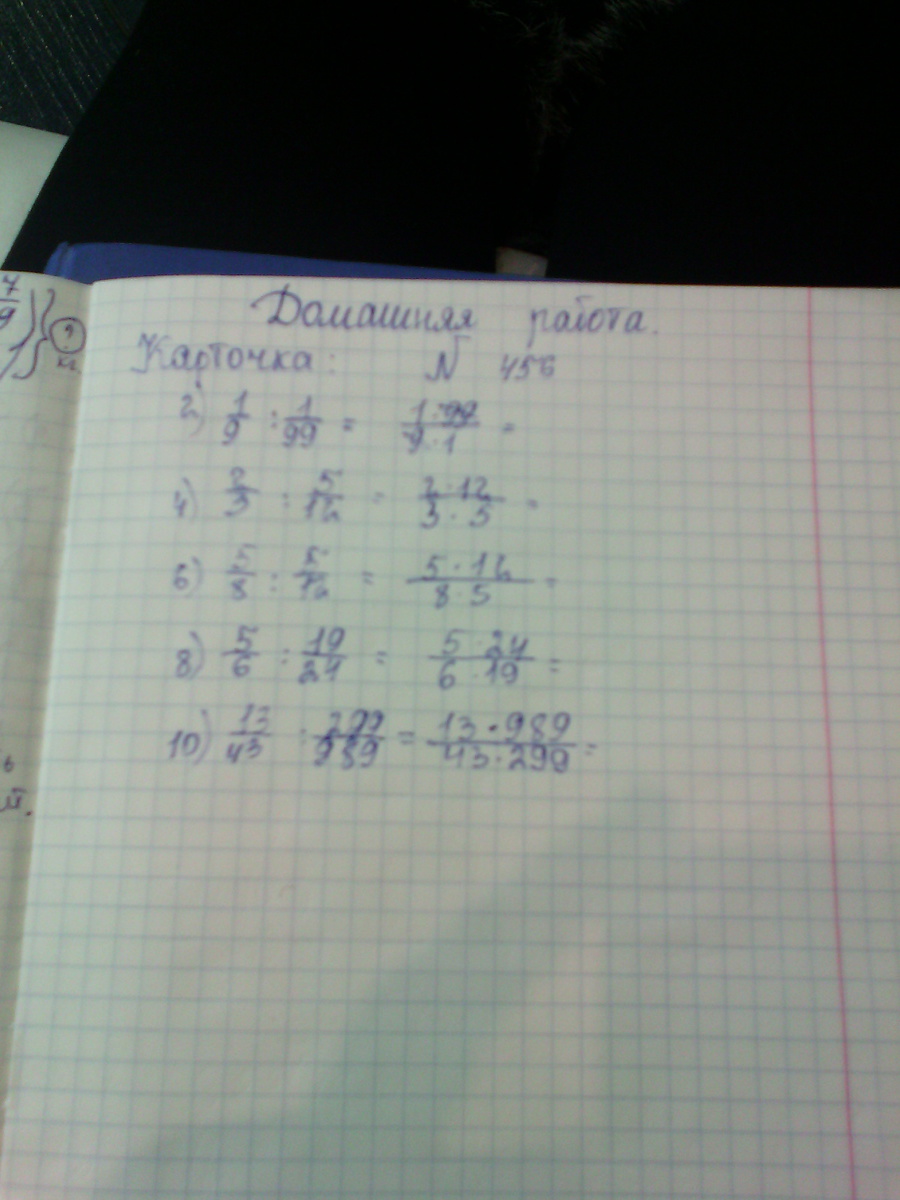 Домашняя работа.
Карточка: N 456
2) 1/9 : 1/99 = 1·99/9·1 =
4) 2/3 : 5/12 = 2·12/3·5 =
6) 5/8 : 5/12 = 5·12/8·5 =
8) 5/6 : 19/24 = 5·24/6·19 =
10) 13/43 : 299/989 = 13·989/43·299 =
7/9